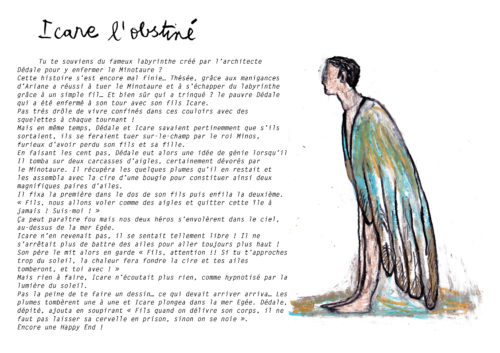 Icare l'obstiné
Tu te souviens du fameux labyrinthe créé par l'architecte
Dédale pour y enfermer le Minotaure ?
Cette histoire s'est encore mal finie… Thésée, grâce aux manigances
d'Ariane a réussi à tuer le Minotaure et à s'échapper du labyrinthe
grâce à un simple fil… Et bien sûr qui a trinqué ? le pauvre Dédale
qui a été enfermé à son tour avec son fils Icare.
Pas très drôle de vivre confinés dans ces couloirs avec des
squelettes à chaque tournant !
Mais en même temps, Dédale et Icare savaient pertinemment que s'ils
sortaient, ils se feraient tuer sur-le-champ par le roi Minos,
furieux d'avoir perdu son fils et sa fille.
En faisant les cent pas, Dédale eut alors une idée de génie lorsqu'il
Il tomba sur deux carcasses d'aigles, certainement dévorés par
le Minotaure. Il récupéra les quelques plumes qu'il en restait et
les assembla avec la cire d'une bougie pour constituer ainsi deux
magnifiques paires d'ailes.
Il fixa la première dans le dos de son fils puis enfila la deuxième.
« Fils, nous allons voler comme des aigles et quitter cette île à
jamais ! Suis-moi ! »
Ça peut paraître fou mais nos deux héros s'envolèrent dans le ciel,
au-dessus de la mer Egée.
Icare n'en revenait pas, il se sentait tellement libre ! Il ne
s'arrêtait plus de battre des ailes pour aller toujours plus haut !
Son père le mit alors en garde « Fils, attention !! Si tu t'approches
trop du soleil, la chaleur fera fondre la cire et tes ailes
tomberont, et toi avec ! »
Mais rien à faire, Icare n'écoutait plus rien, comme hypnotisé par la
lumière du soleil.
Pas la peine de te faire un dessin… ce qui devait arriver arriva… Les
plumes tombèrent une à une et Icare plongea dans la mer Egée. Dédale,
dépité, ajouta en soupirant « Fils quand on délivre son corps, il ne
faut pas laisser sa cervelle en prison, sinon on se noie ».
Encore une Happy End !